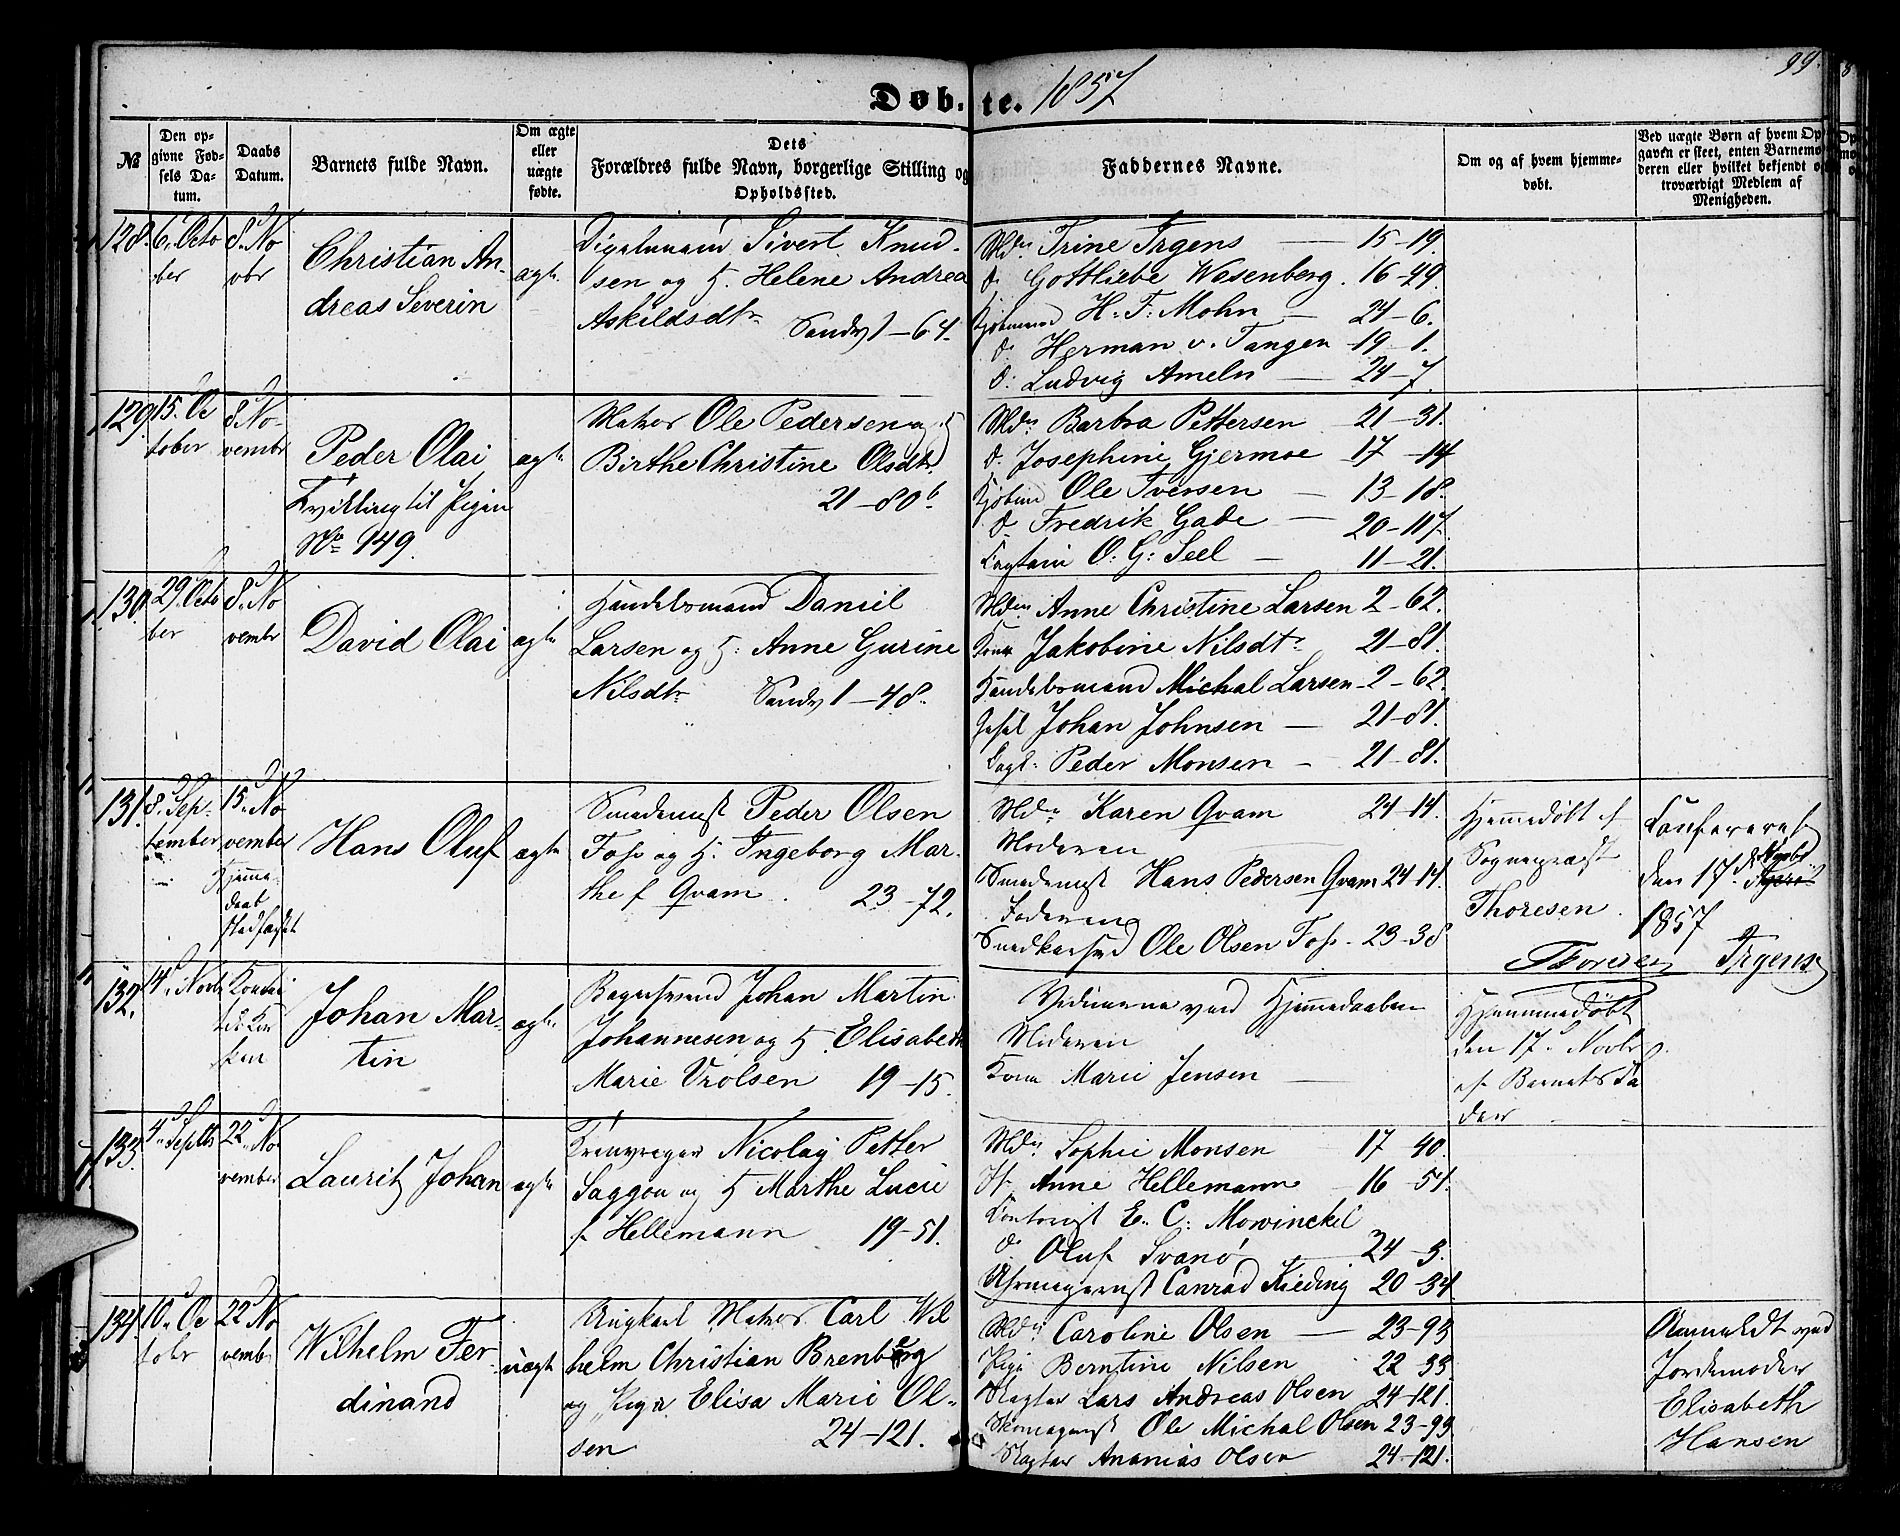 99.
Døb-te. 1857
№
Den op-
givne Fød-
sels Da-
tum.
Daabs
Datum.
Barnets fulde Navn.
Om ægte
eller
uægte
fødte.
Dets
Forældres fulde Navn, borgerlige Stilling og
Opholdssted.
Faddernes Navne.
Om og af hvem hjemme-
døbt.
Ved uægte Børn af hvem Op-
gaven er skeet, enten Barnemo-
deren eller hvilket bekjendt og
troværdigt Medlem af
Menigheden.
128. 6. Octo
ber
8. No
vbr
Christian An-
dreas Severin
ægte
Sivert Knud-
sen og H. Helene Andrea
Askildsdtr Sandv 1–64.
Mdm. Trine Irgens — 15–19.
do Gottliebe Wesenberg. 16–49.
Kjøbmand H. F. Mohn — 24–6.
do Herman v. Tangen 19–1.
do Ludvig Ameln — 24–7.
129. 15. Oc
tober
8. No-
vembr
Peder Olai
Tvilling til Pigen
No 149.
ægte
Matros Ole Pedersen og H
Birthe Christine Olsdtr.
21–80 b.
Mdm Barbra Pettersen 21–31.
do Josephine Gjermoe 17–14
Kjøbmd Ole Iversen — 13–18.
do Fredrik Gade — 20–117.
Captain O. G. Seel — 11–21.
130. 29. Octo
ber
8. No
vembr
David Olai
ægte
Handelsmand Daniel
Larsen og H. Anne Gurine
Nilsdtr Sandv 1–48.
Mdm Anne Christine Larsen 2–62.
Kone Jakobine Nilsdtr 21–81.
Handelsmand Michal Larsen 2–62.
Johan Johnsen — 21–81.
Peder Monsen — 21–81.
131. 8. Sep-
tember
15. No
vember
Hjemme-
daab
stadfæstet
Hans Oluf
ægte
Smedemst Peder Olsen
Foss og H. Ingeborg Mar-
the f Qvam. 23–72.
Mdm Karen Qvam 24–14.
Moderen
Smedemst Hans Pedersen Qvam 24–14.
Faderen
Ole Olsen Foss – 23–38
Hjemmedøbt af
Sognepræst
Thoresen.
Confereret
den 17d Novbr
1857
Thoresen Irgens
132. 14. Novbr
Johan Mar-
tin
ægte
Johan Martin
Johannesen og H. Elisabeth
Marie Vrolsen 19–15.
Vidnerne ved Hjemmedaaben
Moderen
Kone Marie Jensen
Hjemmedøbt
den 17d Novbr
af Barnets Fa
der
133. 4. Septbr
22. No
vember
Lauritz Johan
ægte
Nicolay Petter
Saggou og H Marthe Lucie
f Hellemann 19–51.
Mdm Sophie Monsen 17–40.
Anne Hellemann 16–51.
Contorist E. C. Mowinckel
do Oluf Svanø 24–3.
Uhrmagermst Conrad Kieding 20–34
134. 10. Oc
tobr
22. No
vembr
Wilhelm Fer-
dinand
uægte
Ungkarl Matros Carl Wil
helm Christian Brenberg
og Pige Elisa Marie Ol-
sen 24–121.
Mdm Caroline Olsen — 23–93
Pige Berntine Nilsen 22–33
Slagter Lars Andreas Olsen 24–121.
Skomagermst Ole Michal Olsen 23–93
Slagter Ananias Olsen 24–121.
Anmeldt ved
Jordemoder
Elisabeth
Hansen